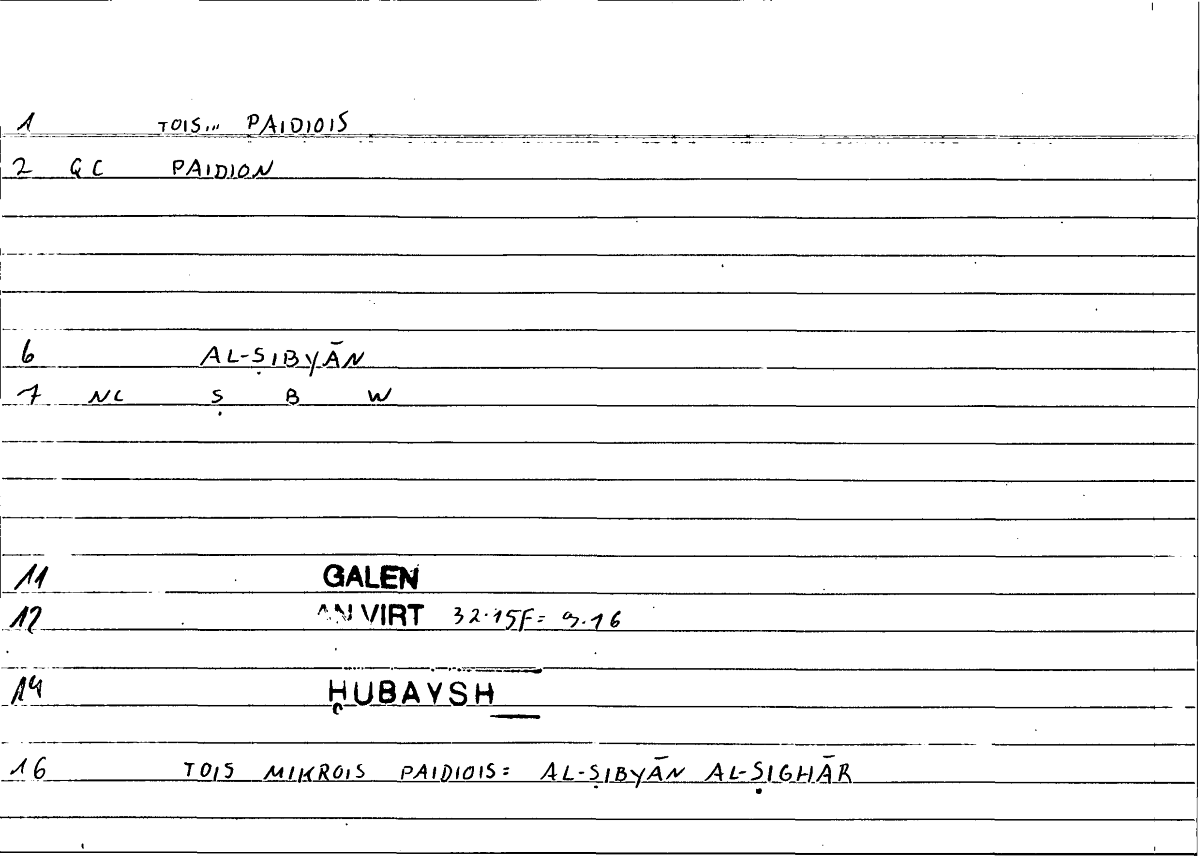 1 TOIS... PAIDIOIS
2 GC PAIDION
6 AL-ṢIBYĀN
7 NC Ṣ B W
11 GALEN
12 AN VIRT 32.15F= 9.16
14 ḤUBAYSH
16 TOIS MIKROIS PAIDIOIS= AL-ṢIBYĀN AL-ṢIGHĀR